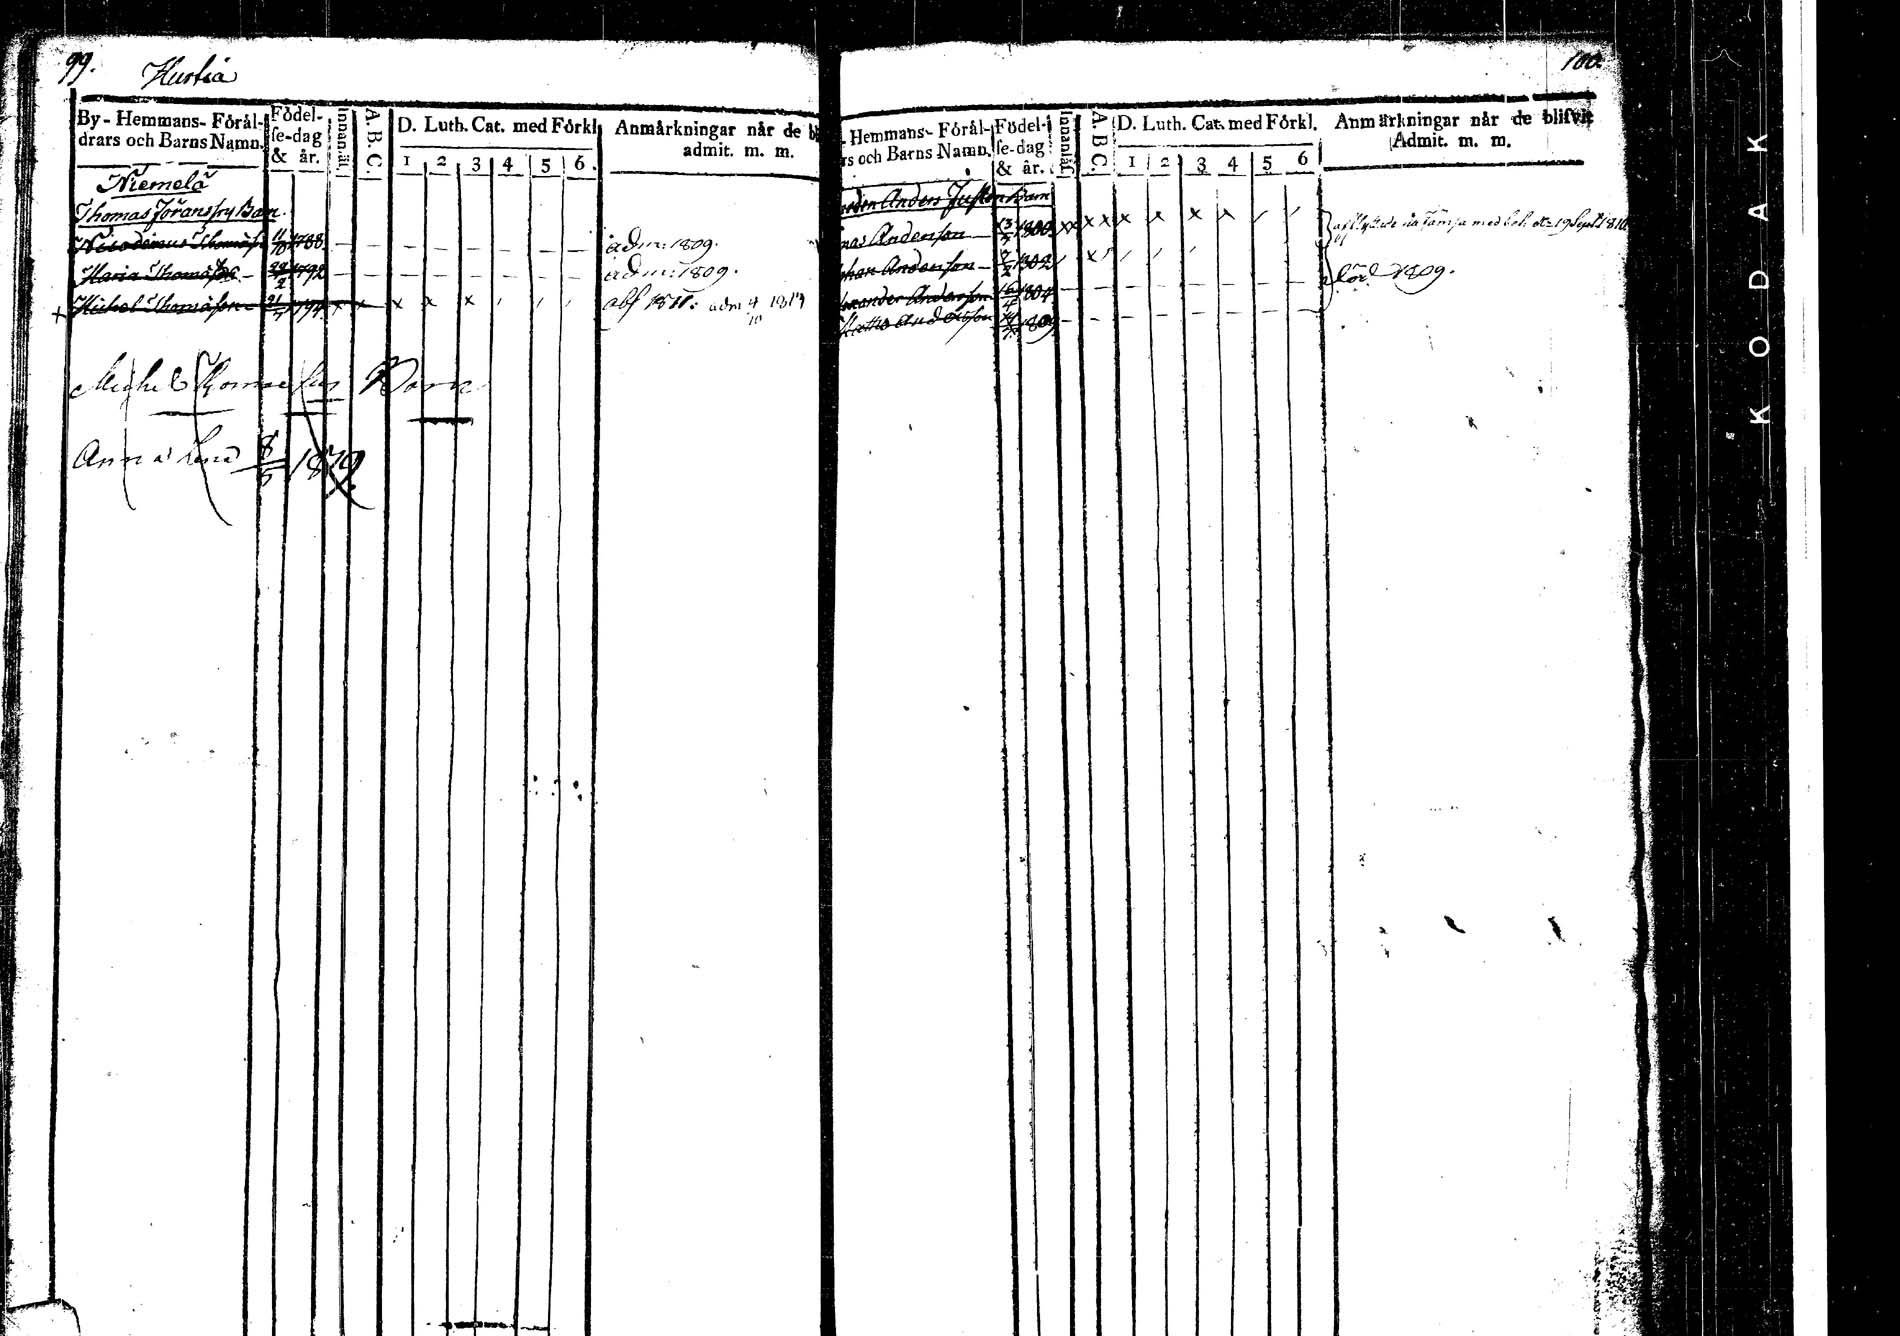 99.
Hustia
By - Hemmans- Förål-
drars och Barns Namn.
Födel-
se-dag
& år.
Innanläs.
A. B. C.
D. Luth. Cat. med Förkl.
1 2 3 4 5 6.
Anmärkningar når de bl
admit. m. m.
Niemelä
Thomas Jöranss Barn.
Nicodemus Thomass 11/10 1788 – – – – – – – – adm: 1809.
Maria Thomasd. 1792 – – – – – – – – adm: 1809.
+ Michel Thomasson 21/ 1794 x x x x x abs 1811: adm 4/10 1819
Michel Thomasson Barn
Anna Lena 8/5 1819
100.
Hemmans- Förål-
rs och Barns Namn.
Födel-
se-dag
& år.
Innanläs.
A. B C.
D. Luth. Cat. med Förkl.
1 2 3 4 5 6
Anmärkningar når de blifvit
Admit. m. m.
Anders Barn
Anderson 13/ 1800 x x x x x x x x afflyttade Jämsä med 19 Sept 1810
han Anderson 2/2 1802 x
xander Anderson 16/4 1804 – – – – – – – – 1809.
Matts Andersson 1809 – – – – – – – –
KODAK